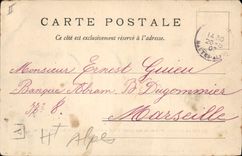 CARTE POSTALE
Ce côté est exclusivement réservé à l'adresse.
Monsieur Ernest Guieu
Banque Abram Bd Dugommier
N° 8.
Marseille
Htes Alpes